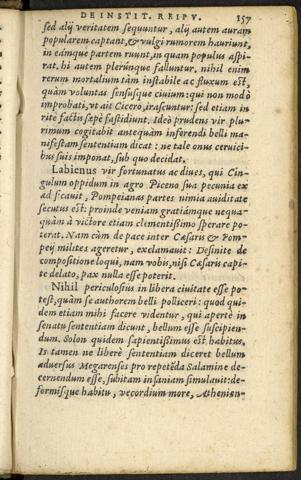 DE INSTIT. REIPV. 157
sed alij veritatem sequuntur, alij autem auram
popularem captant, & vulgi rumorem hauriunt,
in eámque partem ruunt, in quam populus aspi-
rat. hi autem plerúnque falluntur. nihil enim
rerum mortalium tàm instabile ac fluxum est,
quàm voluntas sensusque ciuium: qui non modò
improbati, vt ait Cicero, irascuntur: sed etiam in
ritè factis sæpè fastidiunt. Ideò prudens vir plu-
rimum cogitabit antequàm inferendi belli ma-
nifestam sententiam dicat: ne tale onus ceruici-
bus suis imponat, sub quo decidat.
Labienus vir fortunatus ac diues, qui Cin-
gulum oppidum in agro Piceno sua pecunia ex
ædificauit, Pompeianas partes nimia auiditate
secutus est: proinde veniam gratiámque nequa-
quàm à victore etiam clementissimo sperare po-
terat. Nam cùm de pace inter Cæsaris & Pom-
peij milites ageretur, exclamauit: Desinite de
compositione loqui, nam vobis, nisi Cæsaris capi-
te delato, pax nulla esse poterit.
Nihil periculosius in libera ciuitate esse po-
test, quàm se authorem belli polliceri: quod qui-
dem etiam mihi facere videntur, qui apertè in
senatu sententiam dicunt, bellum esse suscipien-
dum. Solon quidem sapientissimus est habitus,
Is tamen ne liberè sententiam diceret bellum
aduersus Megarenses pro repetẽda Salamine de-
cernendum esse, subitam insaniam simulauit: de-
formísque habitu, vecordium more, Athenien-